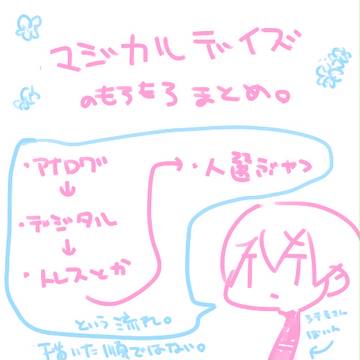 マジカルデイズ
のもろもろまとめ。
・アナログ
↓
・デジタル
↓
・トレスとか
→・人選ジャつ
という流れ。
描いた順ではない。